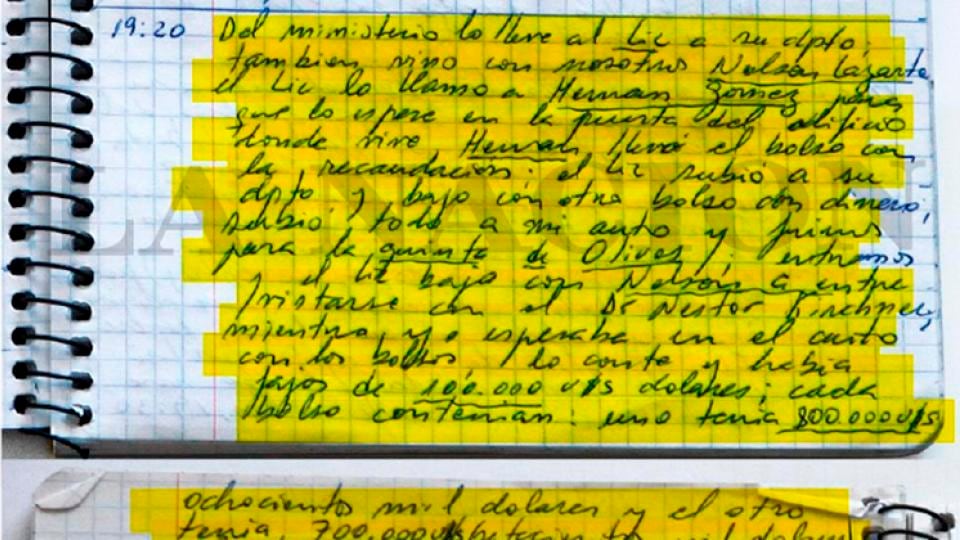 19:20 Del ministerio lo lleve al Lic a su dpto,
tambien vino con nosotros Nelson Lazarte
el Lic lo llamo a Hernan Gomez para
que lo espere en la puerta del edificio
donde vive Hernan llevó el bolso con
la recaudación. el Lic subió a su
dpto y bajo con otro bolso con dinero,
subió todo a mi auto y fuimos
para la quinta de Olivos, entramos
y el Lic bajo con Nelson a entre
/vistarse con el Dr Nestor Kirchner,
mientras yo esperaba en el auto
con los bolsos, lo conte y habia
fajos de 100.000 u/s dolares; cada
bolso contenian: uno tenia 800.000 u/s
ochocientos mil dolares y el otro
tenia, 700.000 u/s setecientos mil dolares
LA NACION